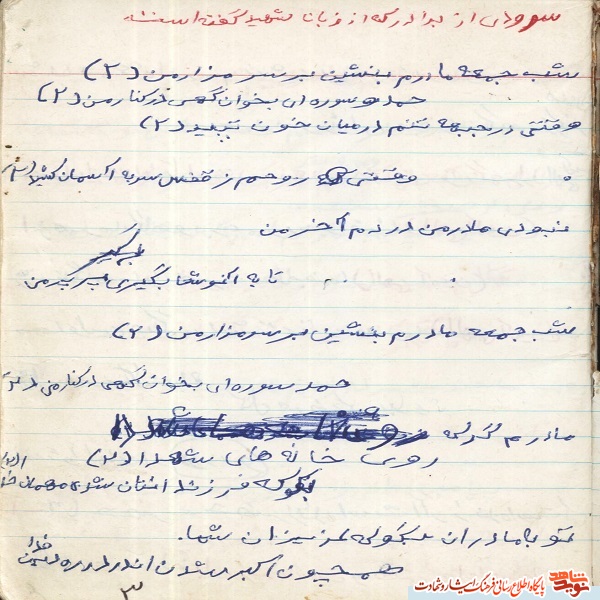 سرودی از برادر که از زبان شهید گفته است
شب جمعه مادرم بنشین بر سر مزار من (۲)
حمد و سوره ای بخوان گهی در کنار من (۲)
وقتی در جبهه تنم در میان خون تپید (۲)
وقتی روحم ز قفس سر به آسمان کشید (۲)
نبودی مادر من در دم آخر من
بگیر
تا به آغوش بگیری پیکر من
شب جمعه مادرم بنشین بر سر مزار من (۲)
حمد سوره ای بخوان گهی در کنار من (۲)
مادرم گر که
روی خانه های شهدا (۲)
بگو که فرزندانتان شدی مهمان خدا (۲)
تو با مادران بگو که عزیزان شما
همچون اکبر شدن اندر ره دین خدا
۳
نوید شاهد
پایگاه اطلاع رسانی فرهنگ ایثار و شهادت